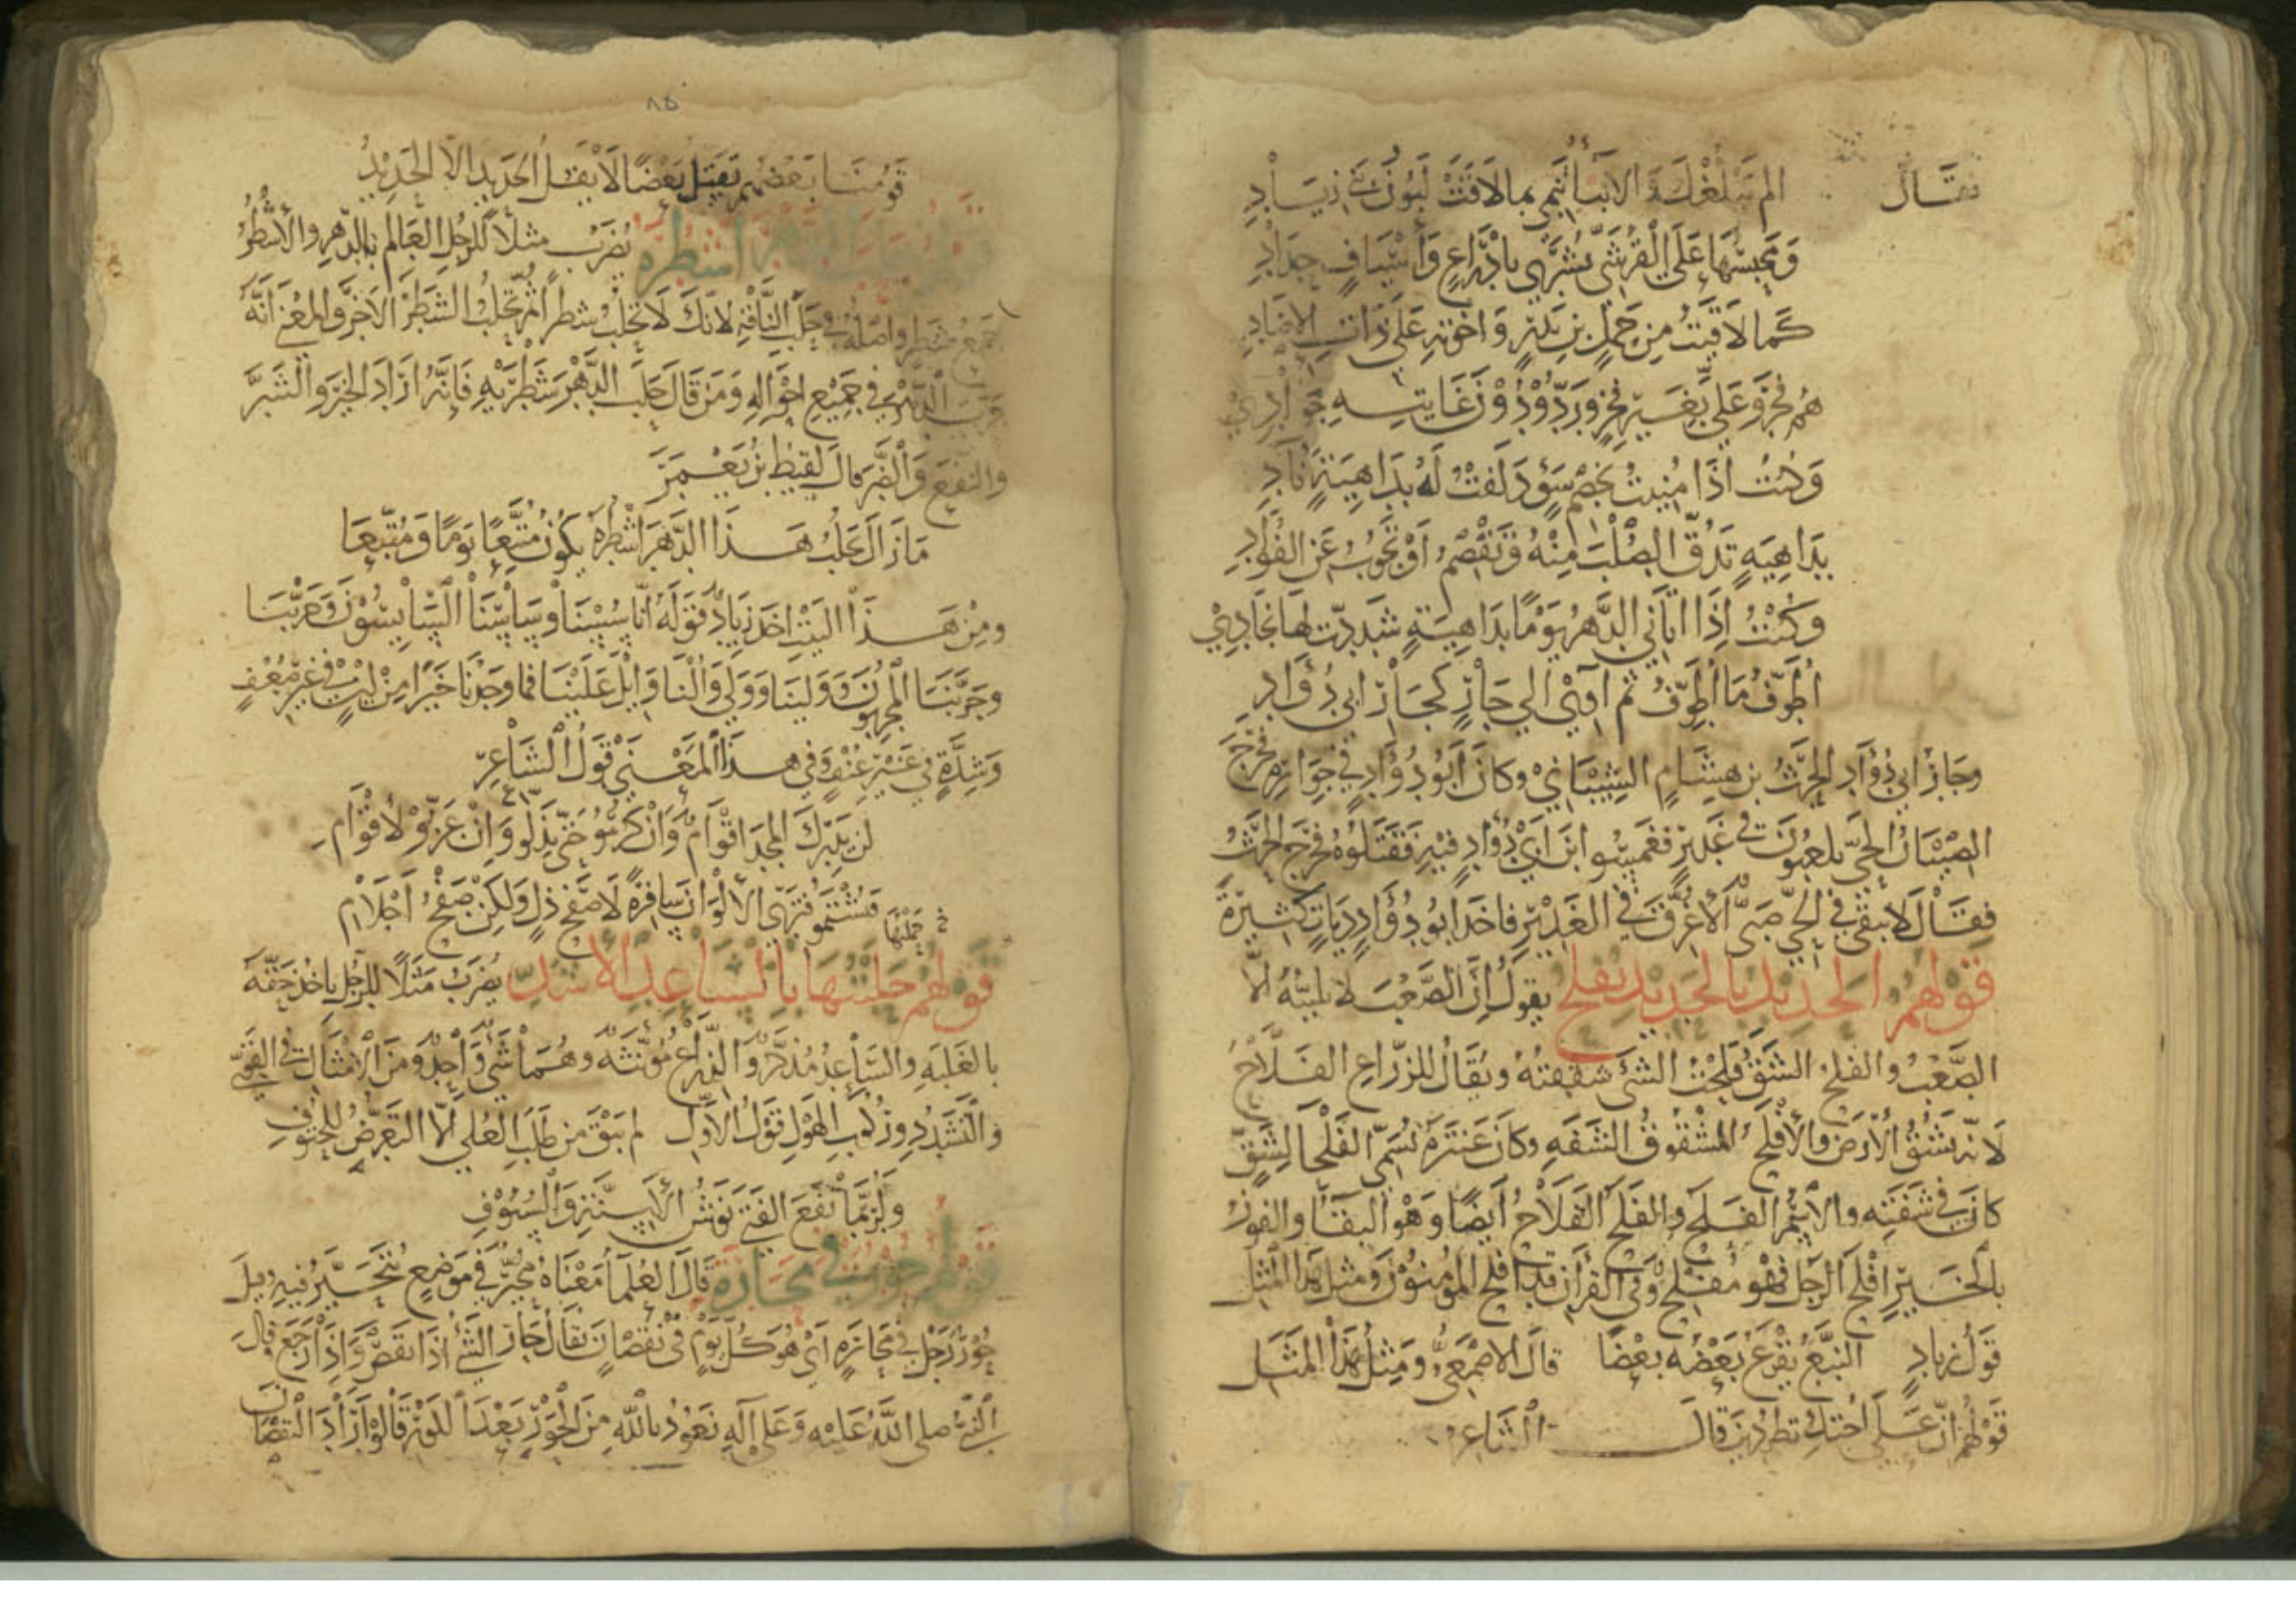 فقال ألم يبلغك الأنباء تنمي بما لاقت لبون بني زياد
ومحبسها على القرشي تشرى بأدراع وأسياف حداد
كما لاقيت من حمل بن بدر وإخوته على ذات الإصاد
هم فخروا علي بغير فخر وردوا دون غايته جوادي
وكنت إذا منيت بخصم سوء دلفت له بداهية نآد
بداهية تدق الصلب منه وتقصم أو تجوب عن الفؤاد
وكنت إذا أتاني الدهر يوما بداهية شددت لها نجادي
أطوف ما أطوف ثم آوي إلى جار كجار أبي دؤاد
وجار أبي دؤاد الحرث بن هشام الشيباني وكان أبو دؤاد في جواره فخرج
الصبيان الحي يلعبون في غدير فغمسوا ابن أبي دؤاد فيه فقتلوه فخرج الحرث
فقال لا يبقى في الحي صبي إلا غرق في الغدير فأخذ أبو دؤاد ديات كثيرة
قولهم الحديد بالحديد يفلح يقول إن الصعب لا يلينه إلا
الصعب والفلح الشق فلحت الشئ شققته ويقال للزراع الفلاح
لأنه يشق الأرض والأفلح المشقوق الشفه وكان عنترة يسمى الفلحا لشق
كان في شفته والاسم الفلح والفلح الفلاح أيضا وهو البقأ والفوز
بالخير أفلح الرجل فهو مفلح وفي القرآن قد أفلح المؤمنون ومثل هذا المثل
قول زياد النبع يقرع بعضه بعضا قال الاصمعي ومثل هذا المثل
قولهم ان على أختك تطردين قال الشاعر
٨٥
قومنا بعضهم يقتل بعضا لا يفل الحديد إلا الحديد
الدهر أشطره يضرب مثلا للرجل العالم بالدهر والأشطر
جمع شطر واصله حلب الناقة لأنك لا تحلب شطرا ثم تحلب الشطر الآخر والمعنى أنه
الدهر في جميع احواله ومن قال حلب الدهر شطريه فإنه أراد الخير والشر
والنفع والضر قال لقيط بن يعمر
ما زال يحلب هذا الدهر أشطره يكون متبعا يوما ومتبعا
ومن هذا البيت اخذ زياد قوله انا سسنا وساسنا السايسون وجربنا
وجربنا المجربون وولينا وولي والنا وايل علينا فما وجدنا خيرا من لين في غير ضعف
وشدة في غير عنف وفي هذا المعنى قول الشاعر
لن يدرك المجد اقوام وان كرموا حتى يذلوا وان عزوا لأقوام
فيشتموا فترى الألوان سافرة لا صفح ذل ولكن صفح أحلام
حملتها
قولهم حلبتها بالساعد الأشد يضرب مثلا للرجل ياخذ حقه
بالغلبه والساعد مذكر والذراع مؤنثه وهما شي واحد ومن الأمثال في القوي
والتشدد وركوب الهول قول الأول لم يبق من طلب العلى الا التعرض للحتوف
ولربما نفع الفتى نوش الأسنة والسيوف
قولهم حور في محارة قال العلمأ معناه محير في موضع يتحير فيه وقيل
حور رجل في محاره أي هو كل يوم في نقصان يقال حار الشئ إذا نقص وإذا رجع قال
النبي صلى الله عليه وعلى آله نعوذ بالله من الحور بعد الكور قالوا أراد النقصان